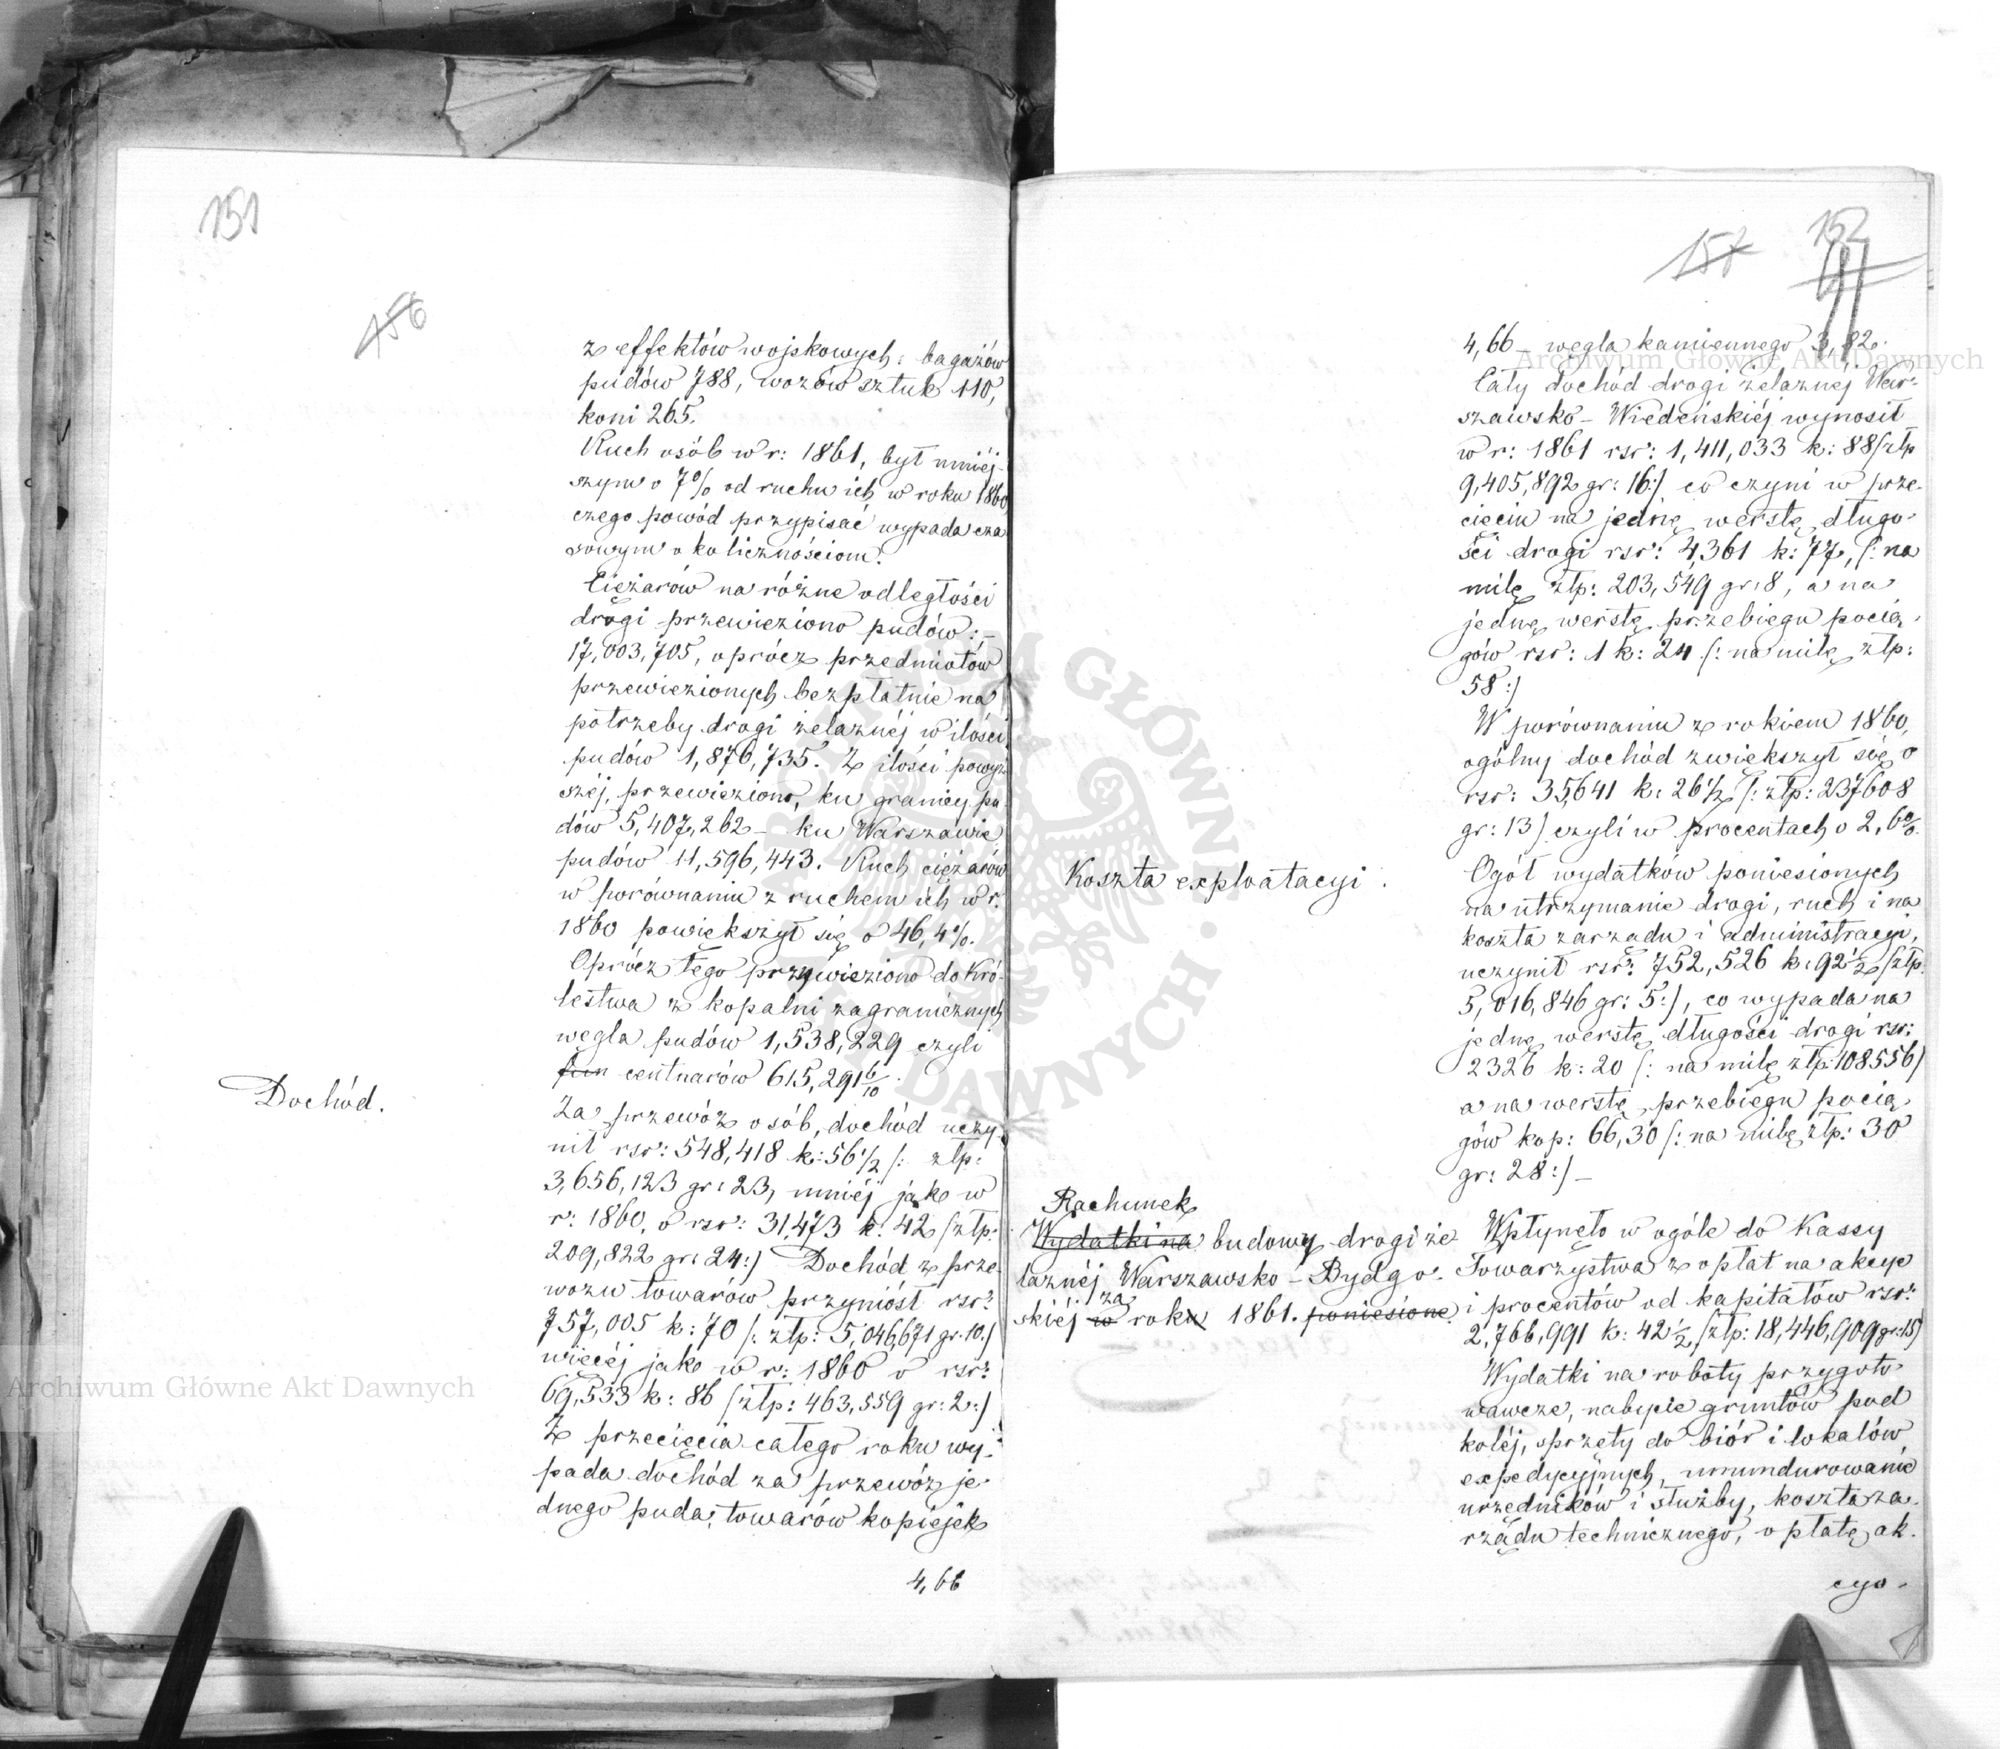 151
156
z effektów wojskowych: bagażów
pudów 788, wozów sztuk 110,
koni 265.
Ruch osób w r: 1861, był mniéj-
szym o 7% od ruchu ich w roku 1860
czego powód przypisać wypada cza
sowym okolicznościom.
Ciężarów na różne odległości
drogi przewieziono pudów: –
17,003,705, oprócz przedmiotów
przewiezionych bezpłatnie na
potrzeby drogi żelaznéj w ilości
pudów 1,876,735. Z ilości powyż
széj, przewieziono, ku granicy pu-
dów 5,407,262 – ku Warszawie
pudów 11,596,443. Ruch ciężarów
w porównaniu z ruchem ich w r.
1860 powiększył się o 46,4%.
Oprócz tego przywieziono do Kró-
lestwa z kopalni zagranicznych
węgla pudów 1,538,229 czyli
centnarów 615,291 6/10.
Dochód.
Za przewóz osób, dochód uczy-
nił rsr: 548,418 k: 56 1/2 /: złp:
3,656,123 gr: 23, mniéj jak w
r: 1860, o rsr: 31,473 k: 42 /złp:
209,822 gr: 24:/ Dochód z prze-
wozu towarów przyniósł rsr:
757,005 k: 70 /: złp: 5,046,671 gr. 10./
więcéj jak w r: 1860 o rsr:
69,533 k: 86 /złp: 463,559 gr: 2:/
Z przecięcia całego roku wy-
pada dochód za przewóz je-
dnego puda, towarów kopiejek
4,66
157
152
4,66 – węgla kamiennego 3,82.
Cały dochód drogi żelaznéj War-
szawsko – Wiedeńskiéj wynosił
w r: 1861 rsr: 1,411,033 k: 88 /złp
9,405,892 gr: 16:/ co czyni w prze-
cięciu na jednę werstę długo-
ści drogi rsr: 4,361 k: 77, /: na
milę złp: 203,549 gr: 8, a na
jednę werstę przebiegu pocią-
gów rsr: 1 k: 24 /: na milę złp:
58:/
W porównaniu z rokiem 1860,
ogólny dochód zwiększył się o
rsr: 35,641 k: 26 1/2 /: złp: 237608
gr: 13/ czyli w procentach o 2,6%.
Koszta exploatacyi.
Ogół wydatków poniesionych
na utrzymanie drogi, ruch i na
koszta zarządu i administracyi,
uczynił rsr: 752,526 k: 92 1/2 /złp.
5,016,846 gr: 5:/, co wypada na
jednę werstę długości drogi rsr:
2326 k: 20 /: na milę złp: 108556/
a na werstę przebiegu pocią-
gów kop: 66,30 /: na milę złp: 30
gr: 28:/ –
Rachunek
Wydatki na budowy drogi że
laznéj Warszawsko – Bydgo-
za
skiéj w roku 1861. poniesione
Wpłynęło w ogóle do Kassy
Towarzystwa z opłat na akcye
i procentów od kapitałów rsr:
2,766,991 k: 42 1/2 /złp: 18,446,909 gr: 15/
Wydatki na roboty przygoto-
wawcze, nabycie gruntów pod
koléj, sprzęty do biór i lokalów
expedycyjnych, umundurowanie
urzędników i służby, koszta za-
rządu technicznego, opłatę ak-
cyo-
Archiwum Główne Akt Dawnych
Archiwum Główne Akt Dawnych
ARCHIWUM GŁÓWNE AKT DAWNYCH